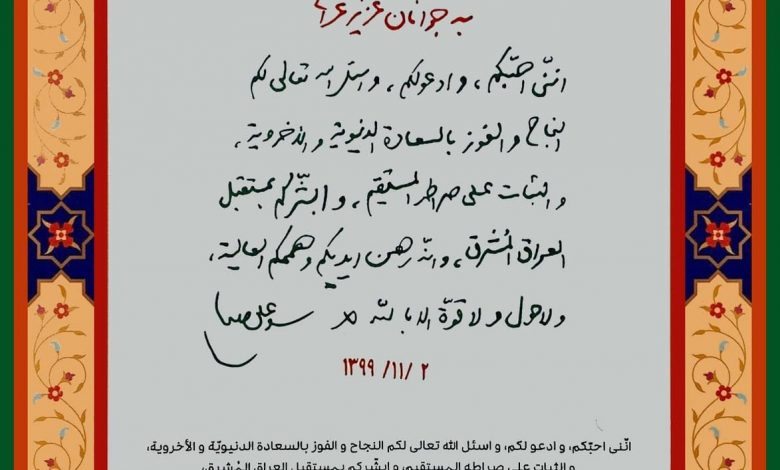 به جوانان عزیز عراق
اننی احبّکم، و ادعولکم، و اسئل الله تعالی لکم
النجاح و الفوز بالسعادة الدنیویة و الاخرویة،
و الثبات علی صراطه المستقیم، و ابشّرکم بمستقبل
العراق المُشرق، و انّه رهن ایدیکم و هممکم العالیة،
و لا حول و لا قوّة الا بالله
سید علی خامنه‌ای
۱۳۹۹/۱۱/۲
انّنی احبّکم، و ادعو لکم، و اسئل الله تعالی لکم النجاح و الفوز بالسعادة الدنیویّة و الأخرویة،
و الثبات علی صراطه المستقیم، و ابشّرکم بمستقبل العراق المُشرق،